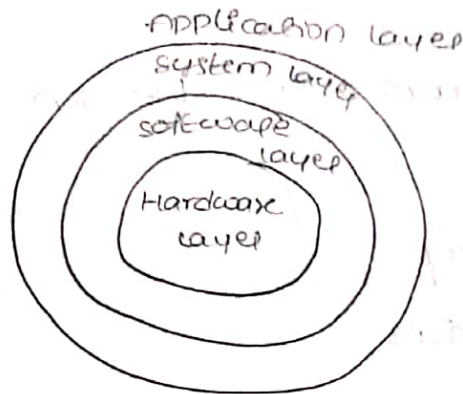 Application layer
system layer
software
layer
Hardware
layer